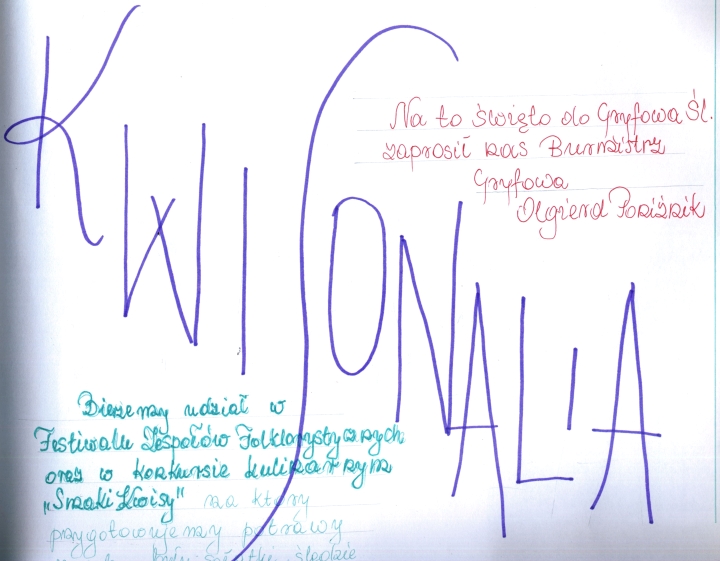 KWISONALIA
Na to święto do Gryfowa Śl.
zaprosił nas Burmistrz
Gryfowa
Olgierd Poniźnik
Bierzemy udział w
Festiwalu Zespołów Folklorystycznych
oraz w konkursie kulinarnym
„Smaki Kwisy" na który
przygotowujemy potrawy
śledzie